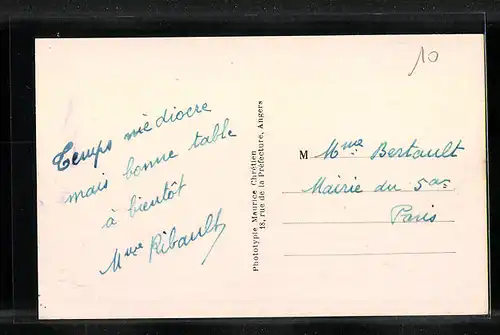 10
Temps médiocre
mais bonne table
à bientôt
Mme Ribault
Phototypie Maurice Chrétien
18, rue de la Préfecture, Angers
M Mme Bertault
Mairie du 5 ar.
Paris